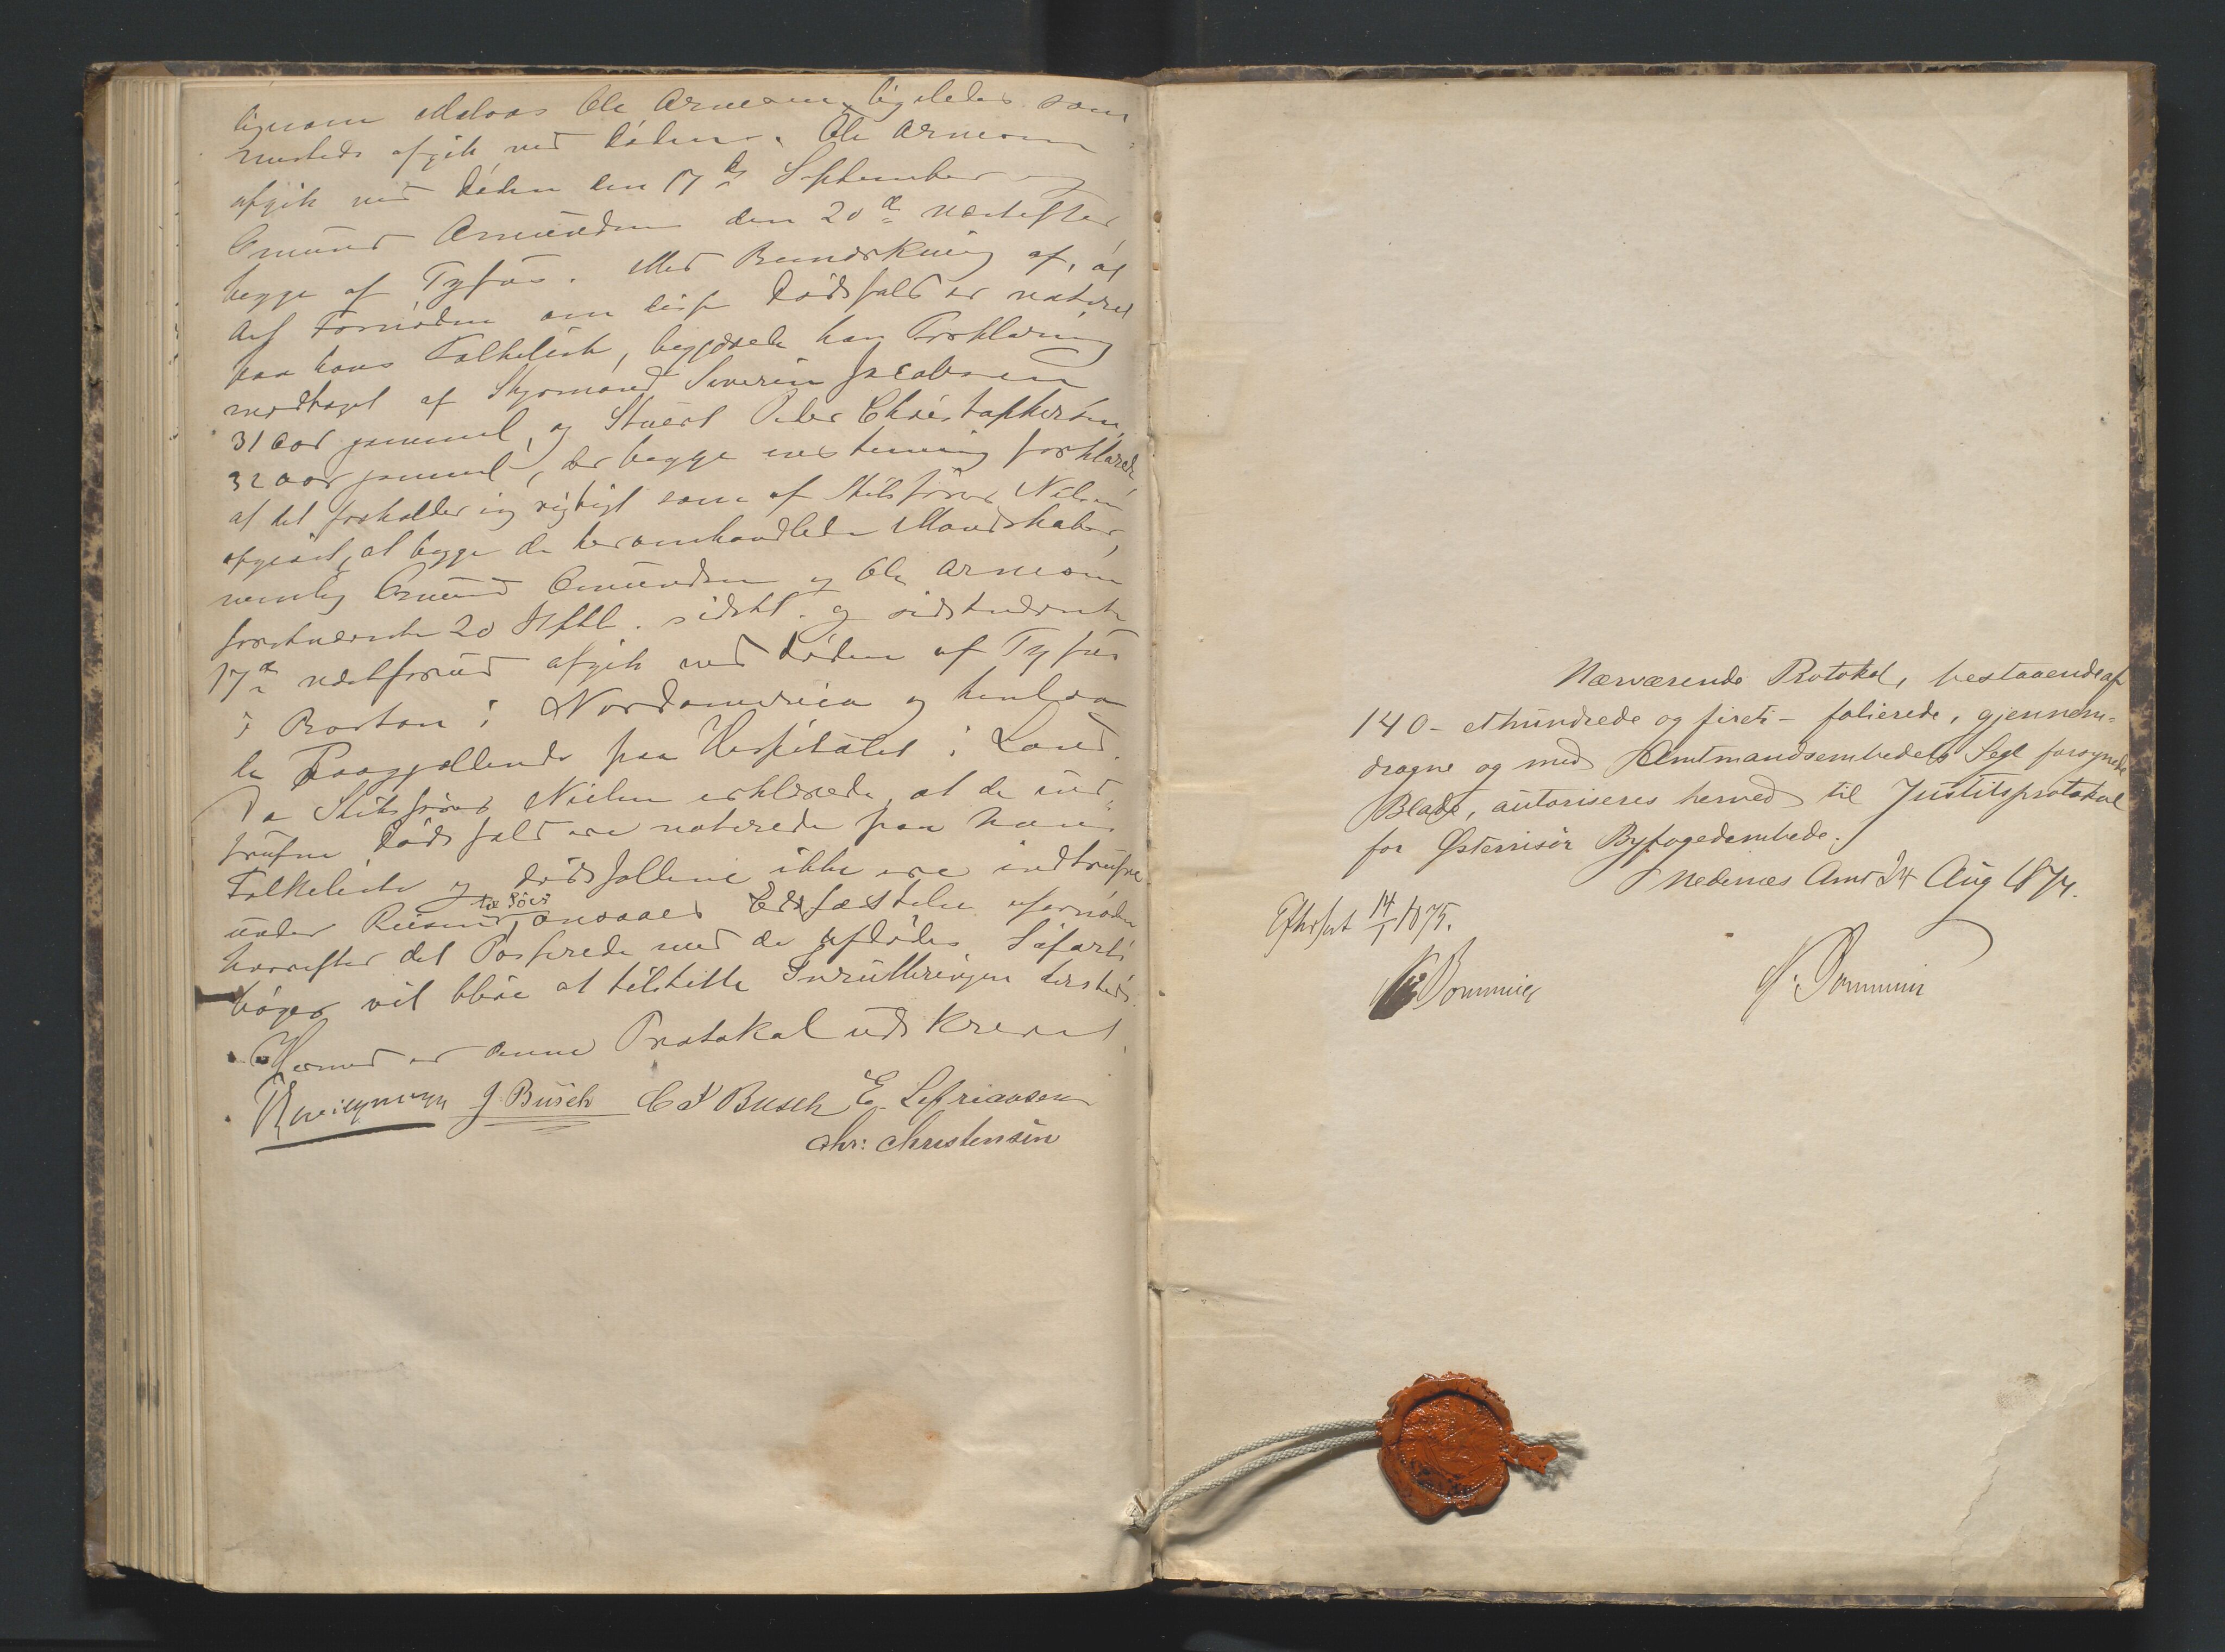 ligesom Matros Ole Arnesen ligeledes som
sammesteds afgik ved Døden. Ole Arnesen
afgik ved Døden den 17de September og
Omund Omundsen den 20de næstefter,
begge af Tyfus. Med Bemærkning af, at
Anf fornøden om disse Dødsfald er noteret
paa hans Folkeliste, begjærede han Forklaring
modtaget af Styrmand Severin Jacobsen
31 Aar gammel, og Stuert Peder Christophersen,
32 Aar gammel, der begge overensstemmig forklarede,
at det forholder sig rigtigt som af Skibsfører Nielsen
opgivet, at begge de heromhandlede Mandskaber,
nemlig Omund Omundsen og Ole Arnesen
førstnævnte 20 Septbr. sidstl. og sidstnævnte
17de næstforud afgik ved Døden af Tyfus
i Boston i Nordamerica og henlaa
de Paagjældende paa Hospitalet i Land.
Da Skibsfører Nielsen erklærede, at de ind-
trufne Dødsfald ere noterede paa hans
Folkeliste og Dødsfallene ikke ere indtrufne
under Reisen til Søes, ansaaes Edsfæstelse ufornøden
hvorefter det Passerede med de afdødes Søfarts-
bøger vil blive at tilstille Inrulleringen hersteds.
Hermed er denne Protokol udskrevet.
J. Busch C F Busch E. Zefriansen
Chr: Christensen
Nærværende Protokol, bestaaende af
140 - ethundrede og fireti - folierede, gjennem-
dragne og med Amtmandsembedets Segl forsynede
Blade, autoriseres herved til Justitsprotokol
for Østerrisør Byfogedembede.
Nedenes Amt 24 Aug 1874.
Efterset 14/1 1875.
Dommer
H. Dommer